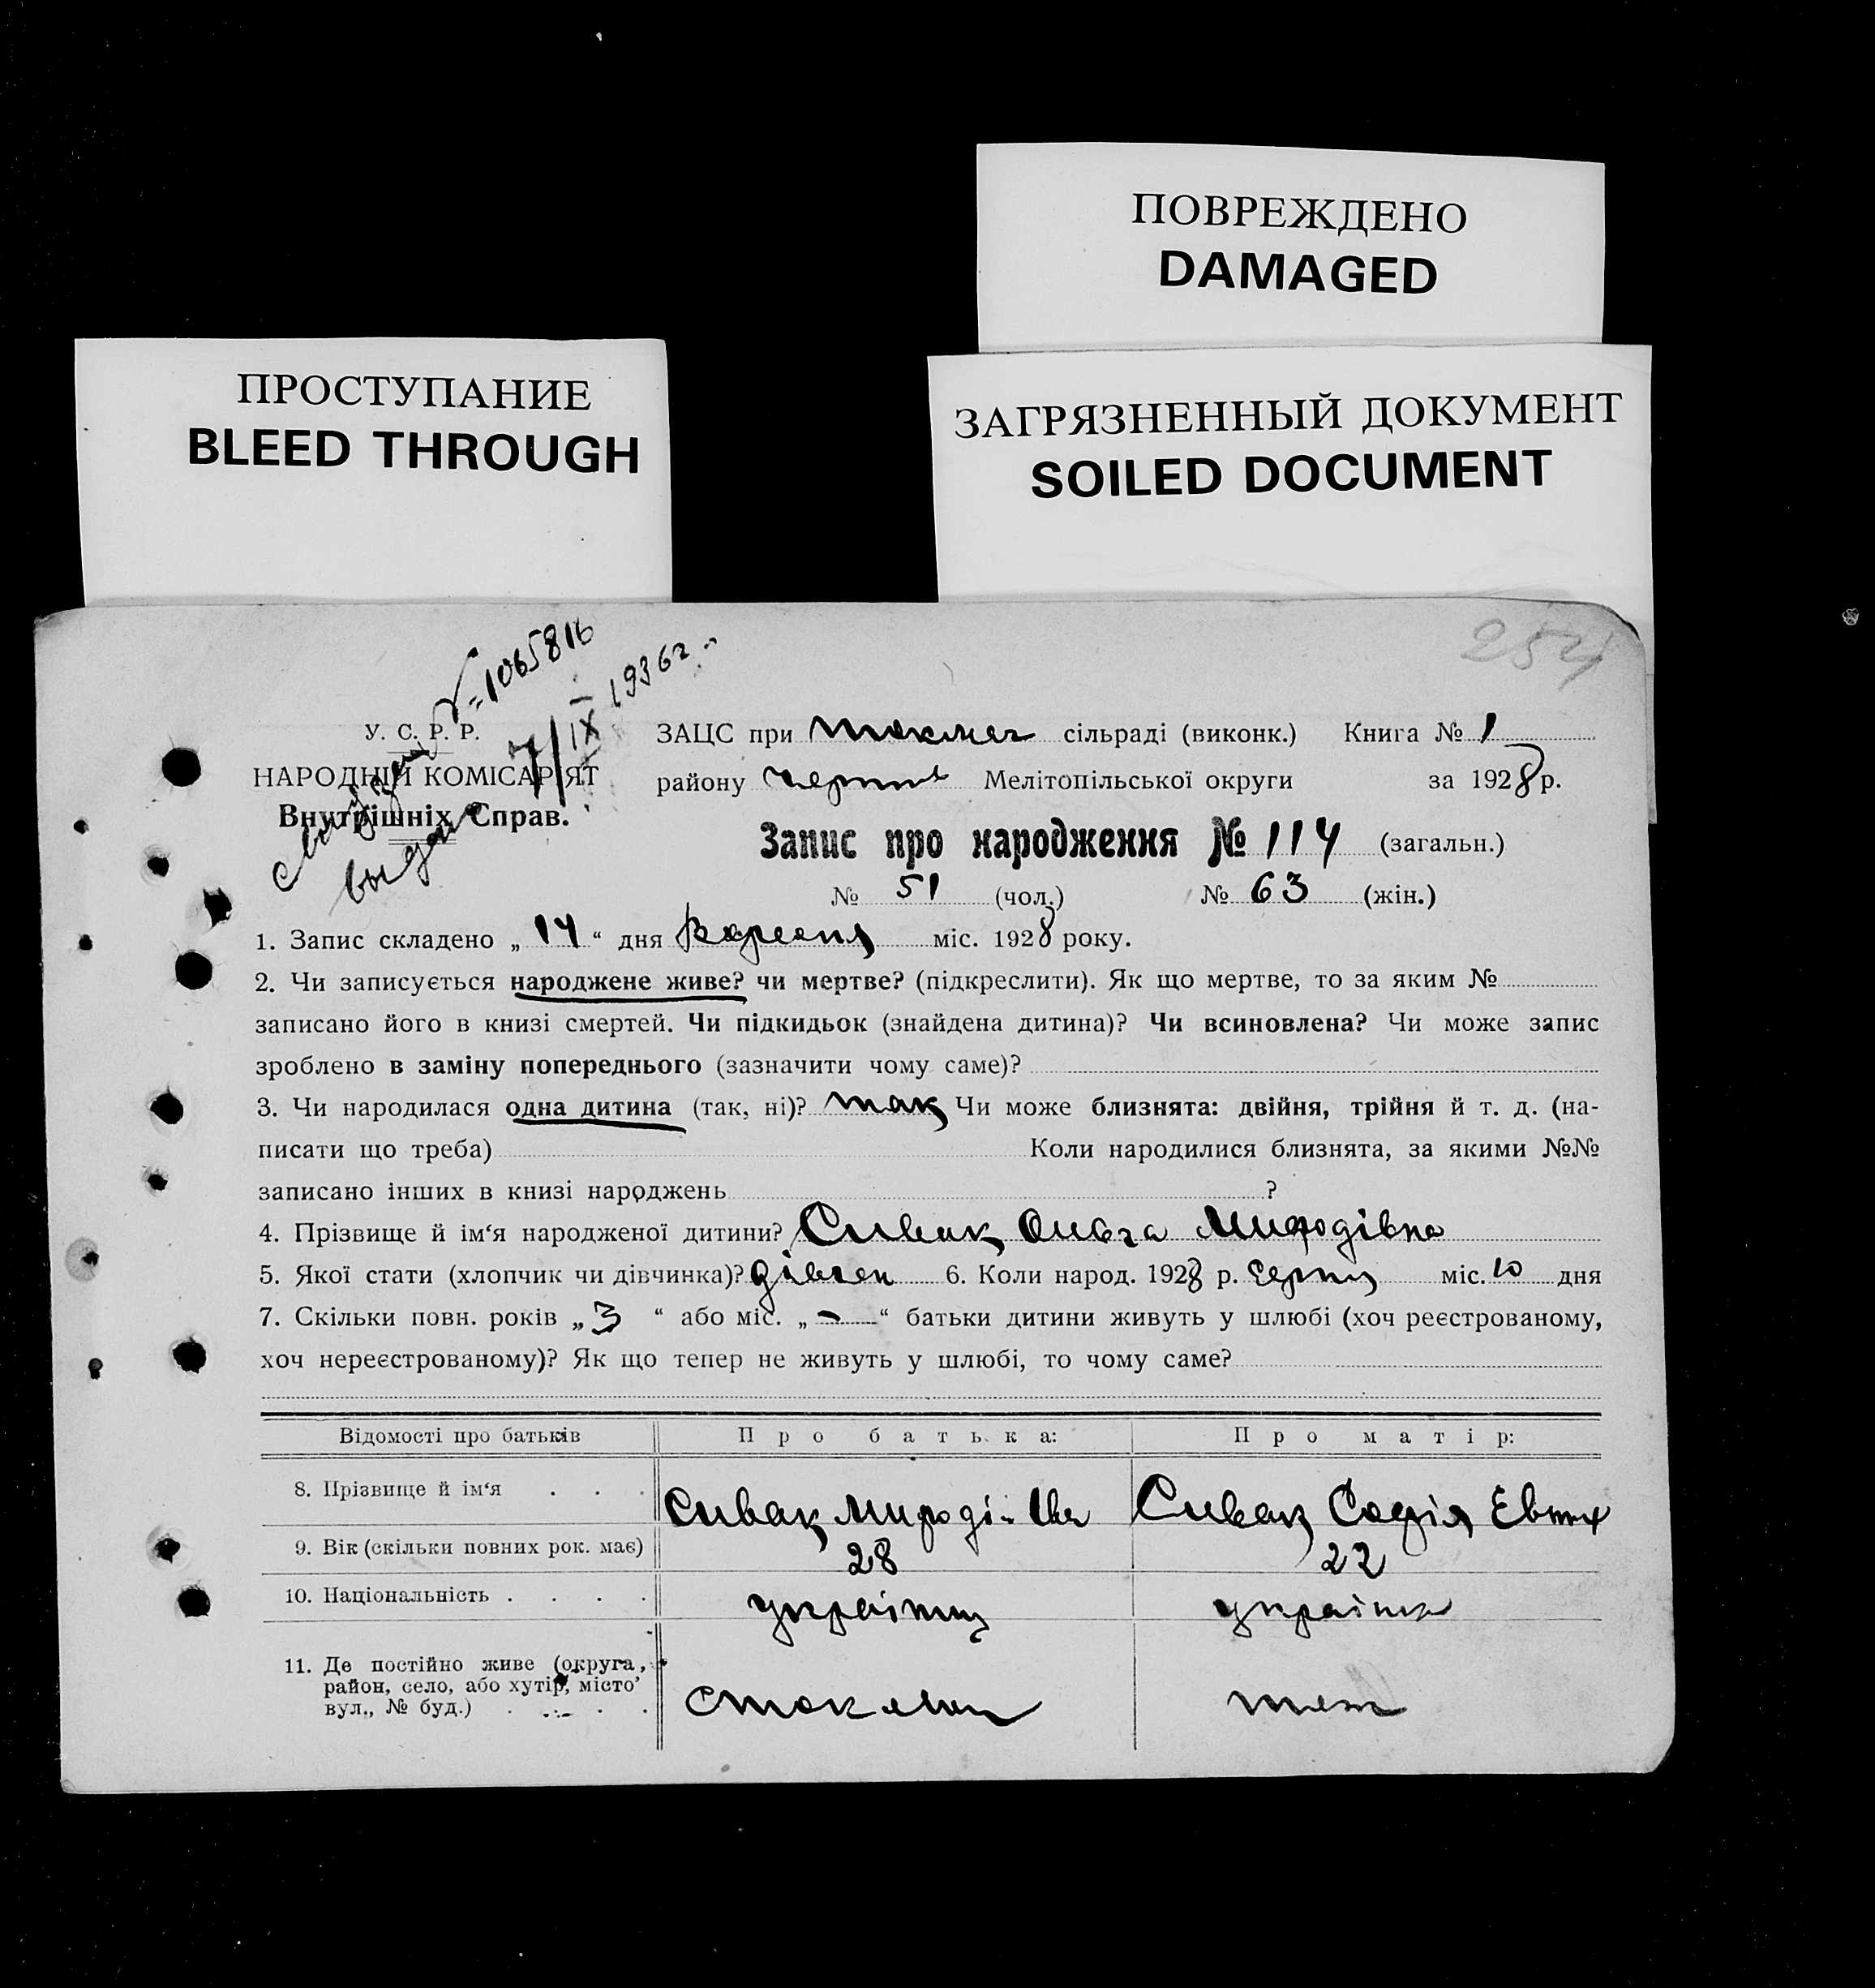 ПОВРЕЖДЕНО
DAMAGED
ПРОСТУПАНИЕ
BLEED THROUGH
ЗАГРЯЗНЕННЫЙ ДОКУМЕНТ
SOILED DOCUMENT
254
№ = 1065816
7/IX 1936 г.
выдано
У. С. Р. Р.
НАРОДНІЙ КОМІСАРІЯТ
Внутрішніх Справ.
ЗАЦС при Токмач сільраді (виконк.) Книга № 1
району Мелітопільської округи за 1928 р.
Запис про народження № 114 (загальн.)
№ 51 (чол.) № 63 (жін.)
1. Запис складено „ 14 “ дня Вересня міс. 1928 року.
2. Чи записується народжене живе? чи мертве? (підкреслити). Як що мертве, то за яким №
записано його в книзі смертей. Чи підкидьок (знайдена дитина)? Чи всиновлена? Чи може запис
зроблено в заміну попереднього (зазначити чому саме)?
3. Чи народилася одна дитина (так, ні)? так Чи може близнята: двійня, трійня й т. д. (на-
писати що треба) Коли народилися близнята, за якими №№
записано інших в книзі народжень ?
4. Прізвище й ім‘я народженої дитини? Сивак Ольга Мифодівна
5. Якої стати (хлопчик чи дівчинка)? дівчен 6. Коли народ. 1928 р. Серпня міс. 10 дня
7. Скільки повн. років „ 3 “ або міс. „ - “ батьки дитини живуть у шлюбі (хоч реєстрованому,
хоч нереєстрованому)? Як що тепер не живуть у шлюбі, то чому саме?
Відомості про батьків Про батька: Про матір:
8. Прізвище й ім‘я . . . Сивак Мифоді Ів Сивак Софія Евтих
9. Вік (скільки повних рок. має) 28 22
10. Національність . . . . українец українка
11. Де постійно живе (округа,
район, село, або хутір, місто
вул., № буд.) . . . . теж